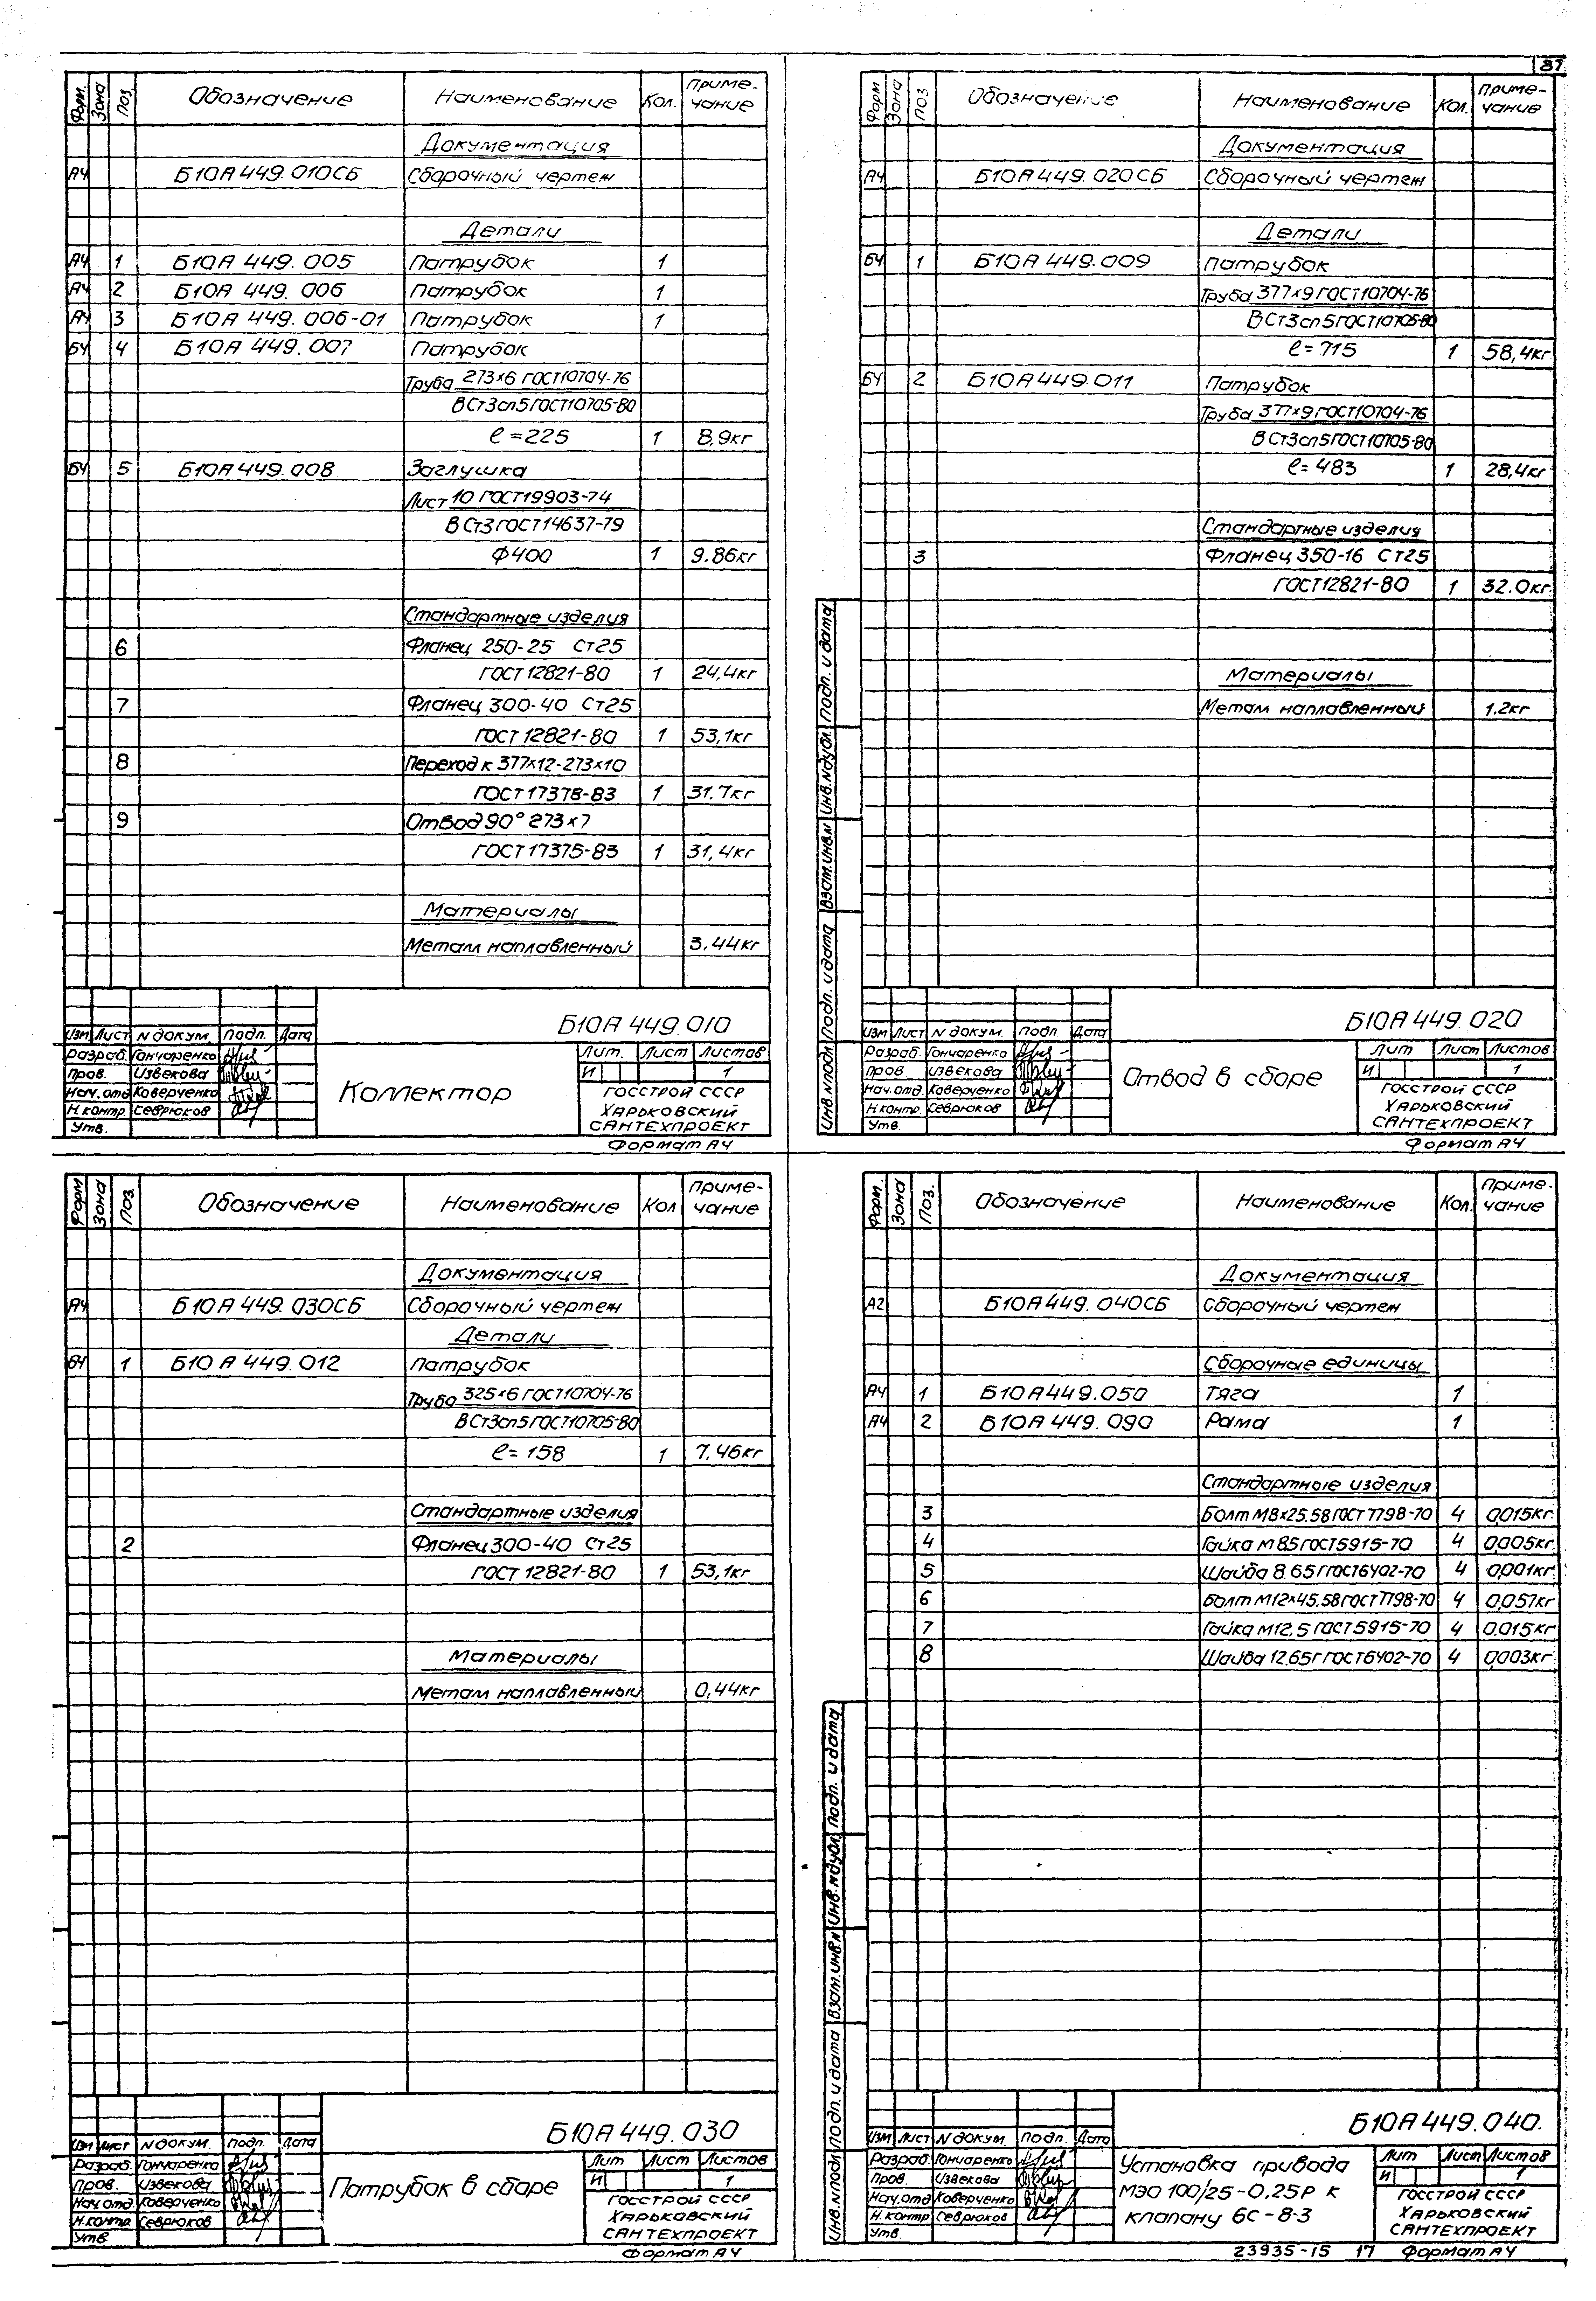 87
Форм. Зона Поз. Обозначение Наименование Кол. Приме-чание
Документация
А4 Б10А449.010СБ Сборочный чертеж
Детали
А4 1 Б10А 449.005 Патрубок 1
А4 2 Б10А 449.006 Патрубок 1
А4 3 Б10А 449.006-01 Патрубок 1
БЧ 4 Б10А 449.007 Патрубок
Труба 273×6 ГОСТ10704-76
ВСт3сп5ГОСТ10705-80
ℓ=225 1 8,9кг
БЧ 5 Б10А449.008 Заглушка
Лист 10 ГОСТ19903-74
ВСт3ГОСТ14637-79
Ф400 1 9.86кг
Стандартные изделия
6 Фланец 250-25 Ст25
ГОСТ12821-80 1 24,4кг
7 Фланец 300-40 Ст25
ГОСТ12821-80 1 53,1кг
8 Переход к 377×12-273×10
ГОСТ17378-83 1 31.7кг
9 Отвод 90° 273×7
ГОСТ17375-83 1 31,4кг
Материалы
Металл наплавленный 3.44кг
Б10А 449.010
Изм Лист N докум. Подп. Дата
Разраб. Гончаренко
Пров. Извекова
Нач.отд Коверченко
Н.контр. Севрюков
Утв.
Коллектор
Лит. Лист Листов
И 1
ГОССТРОЙ СССР
ХАРЬКОВСКИЙ
САНТЕХПРОЕКТ
Формат А4
Форм Зона Поз Обозначение Наименование Кол. Приме-чание
Документация
А4 Б10А449.020СБ Сборочный чертеж
Детали
БЧ 1 Б10А449.009 Патрубок
Труба 377×9 ГОСТ10704-76
ВСт3сп5ГОСТ10705-80
ℓ=715 1 58,4кг
БЧ 2 Б10А449.011 Патрубок
Труба 377×9ГОСТ10704-76
ВСт3сп5ГОСТ10705-80
ℓ=483 1 28,4кг
Стандартные изделия
3 Фланец 350-16 Ст25
ГОСТ12821-80 1 32.0кг
Материалы
Металл наплавленный 1.2кг
Инв.Nподл Подп. и дата Взам.инв.N Инв.Nдубл. Подп. и дата
Б10А449.020
Изм Лист N докум. Подп Дата
Разраб. Гончаренко
Пров. Извекова
Нач.отд Коверченко
Н контр Севрюков
Утв.
Отвод в сборе
Лит Лист Листов
И 1
ГОССТРОЙ СССР
ХАРЬКОВСКИЙ
САНТЕХПРОЕКТ
Формат А4
Форм Зона Поз. Обозначение Наименование Кол Приме-чание
Документация
А4 Б10А449.030СБ Сборочный чертеж
Детали
БЧ 1 Б10 А449.012 Патрубок
Труба 325×6 ГОСТ10704-76
ВСт3сп5ГОСТ10705-80
ℓ=158 1 7,46кг
Стандартные изделия
2 Фланец 300-40 Ст25
ГОСТ12821-80 1 53,1кг
Материалы
Металл наплавленный 0,44кг
Б10А449.030
Изм Лист N докум. Подп. Дата
Разраб. Гончаренко
Пров. Извекова
Нач.отд Коверченко
Н.контр. Севрюков
Утв
Патрубок в сборе
Лит Лист Листов
И 1
ГОССТРОЙ СССР
ХАРЬКОВСКИЙ
САНТЕХПРОЕКТ
Формат А4
Форм. Зона Поз. Обозначение Наименование Кол. Приме-чание
Документация
А2 Б10А449.040СБ Сборочный чертеж
Сборочные единицы
А4 1 Б10А449.050 Тяга 1
А4 2 Б10А449.090 Рама 1
Стандартные изделия
3 Болт М8×25.58 ГОСТ7798-70 4 0,015кг
4 Гайка М8.5ГОСТ5915-70 4 0,005кг
5 Шайба 8.65ГГОСТ6402-70 4 0,001кг
6 Болт М12×45.58ГОСТ7798-70 4 0,057кг
7 Гайка М12.5 ГОСТ5915-70 4 0.015кг
8 Шайба 12.65Г ГОСТ6402-70 4 0,003кг
Инв.Nподл Подп. и дата Взам.инв.N Инв.Nдубл. Подп. и дата
Б10А449.040.
Изм Лист N докум Подп. Дата
Разраб. Гончаренко
Пров. Извекова
Нач.отд Коверченко
Н.контр Севрюков
Утв.
Установка привода
МЭО 100/25-0.25Р к
клапану 6с-8-3
Лит Лист Листов
И 1
ГОССТРОЙ СССР
ХАРЬКОВСКИЙ
САНТЕХПРОЕКТ
23935-15 17 Формат А4